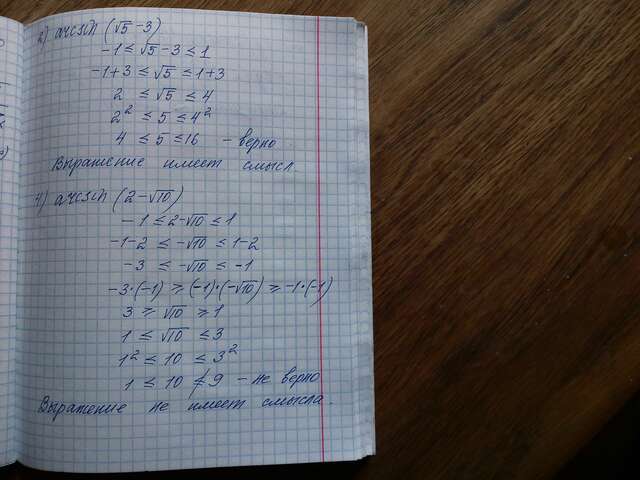 2) arcsin (√5 -3)
-1 ≤ √5 -3 ≤ 1
-1+3 ≤ √5 ≤ 1+3
2 ≤ √5 ≤ 4
2² ≤ 5 ≤ 4²
4 ≤ 5 ≤ 16 - верно
Выражение имеет смысл.
4) arcsin (2-√10)
-1 ≤ 2-√10 ≤ 1
-1-2 ≤ -√10 ≤ 1-2
-3 ≤ -√10 ≤ -1
-3·(-1) ≥ (-1)·(-√10) ≥ -1·(-1)
3 ≥ √10 ≥ 1
1 ≤ √10 ≤ 3
1² ≤ 10 ≤ 3²
1 ≤ 10 ≰ 9 - не верно
Выражение не имеет смысла.